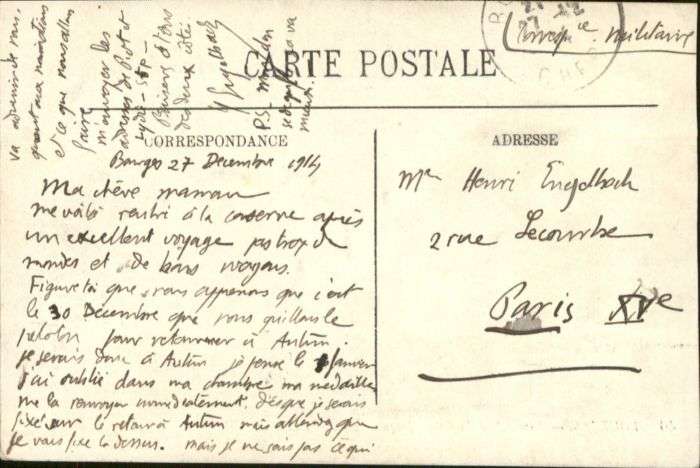 CARTE POSTALE
Corresp ce militaire
CORRESPONDANCE
ADRESSE
Bourges 27 Decembre 1914
Ma chère maman
me voilà rentré à la caserne après
un excellent voyage pas trop de
mondes et de bons wagons.
Figure toi que nous apprenons que c'est
le 30 Decembre que nous quittons le
peloton pour retourner à Autun.
je serais donc à Autun je pense le 1 janvier
j'ai oublié dans ma chambre ma medaille
me la renvoyer immediatement, dès que je serais
fixé sur le retour à Autun mais attendez que
je vous fixe le dessus. mais je ne sais pas ce qui
va advenir de nous
quant aux
et ce que nous allons
faire
m'envoyer les
adresses de Pierot et
Baisers à tous
des deux côtés
Engelbach
PS
va
mieux
Mme Henri Engelbach
2 rue Lecourbe
Paris XVe